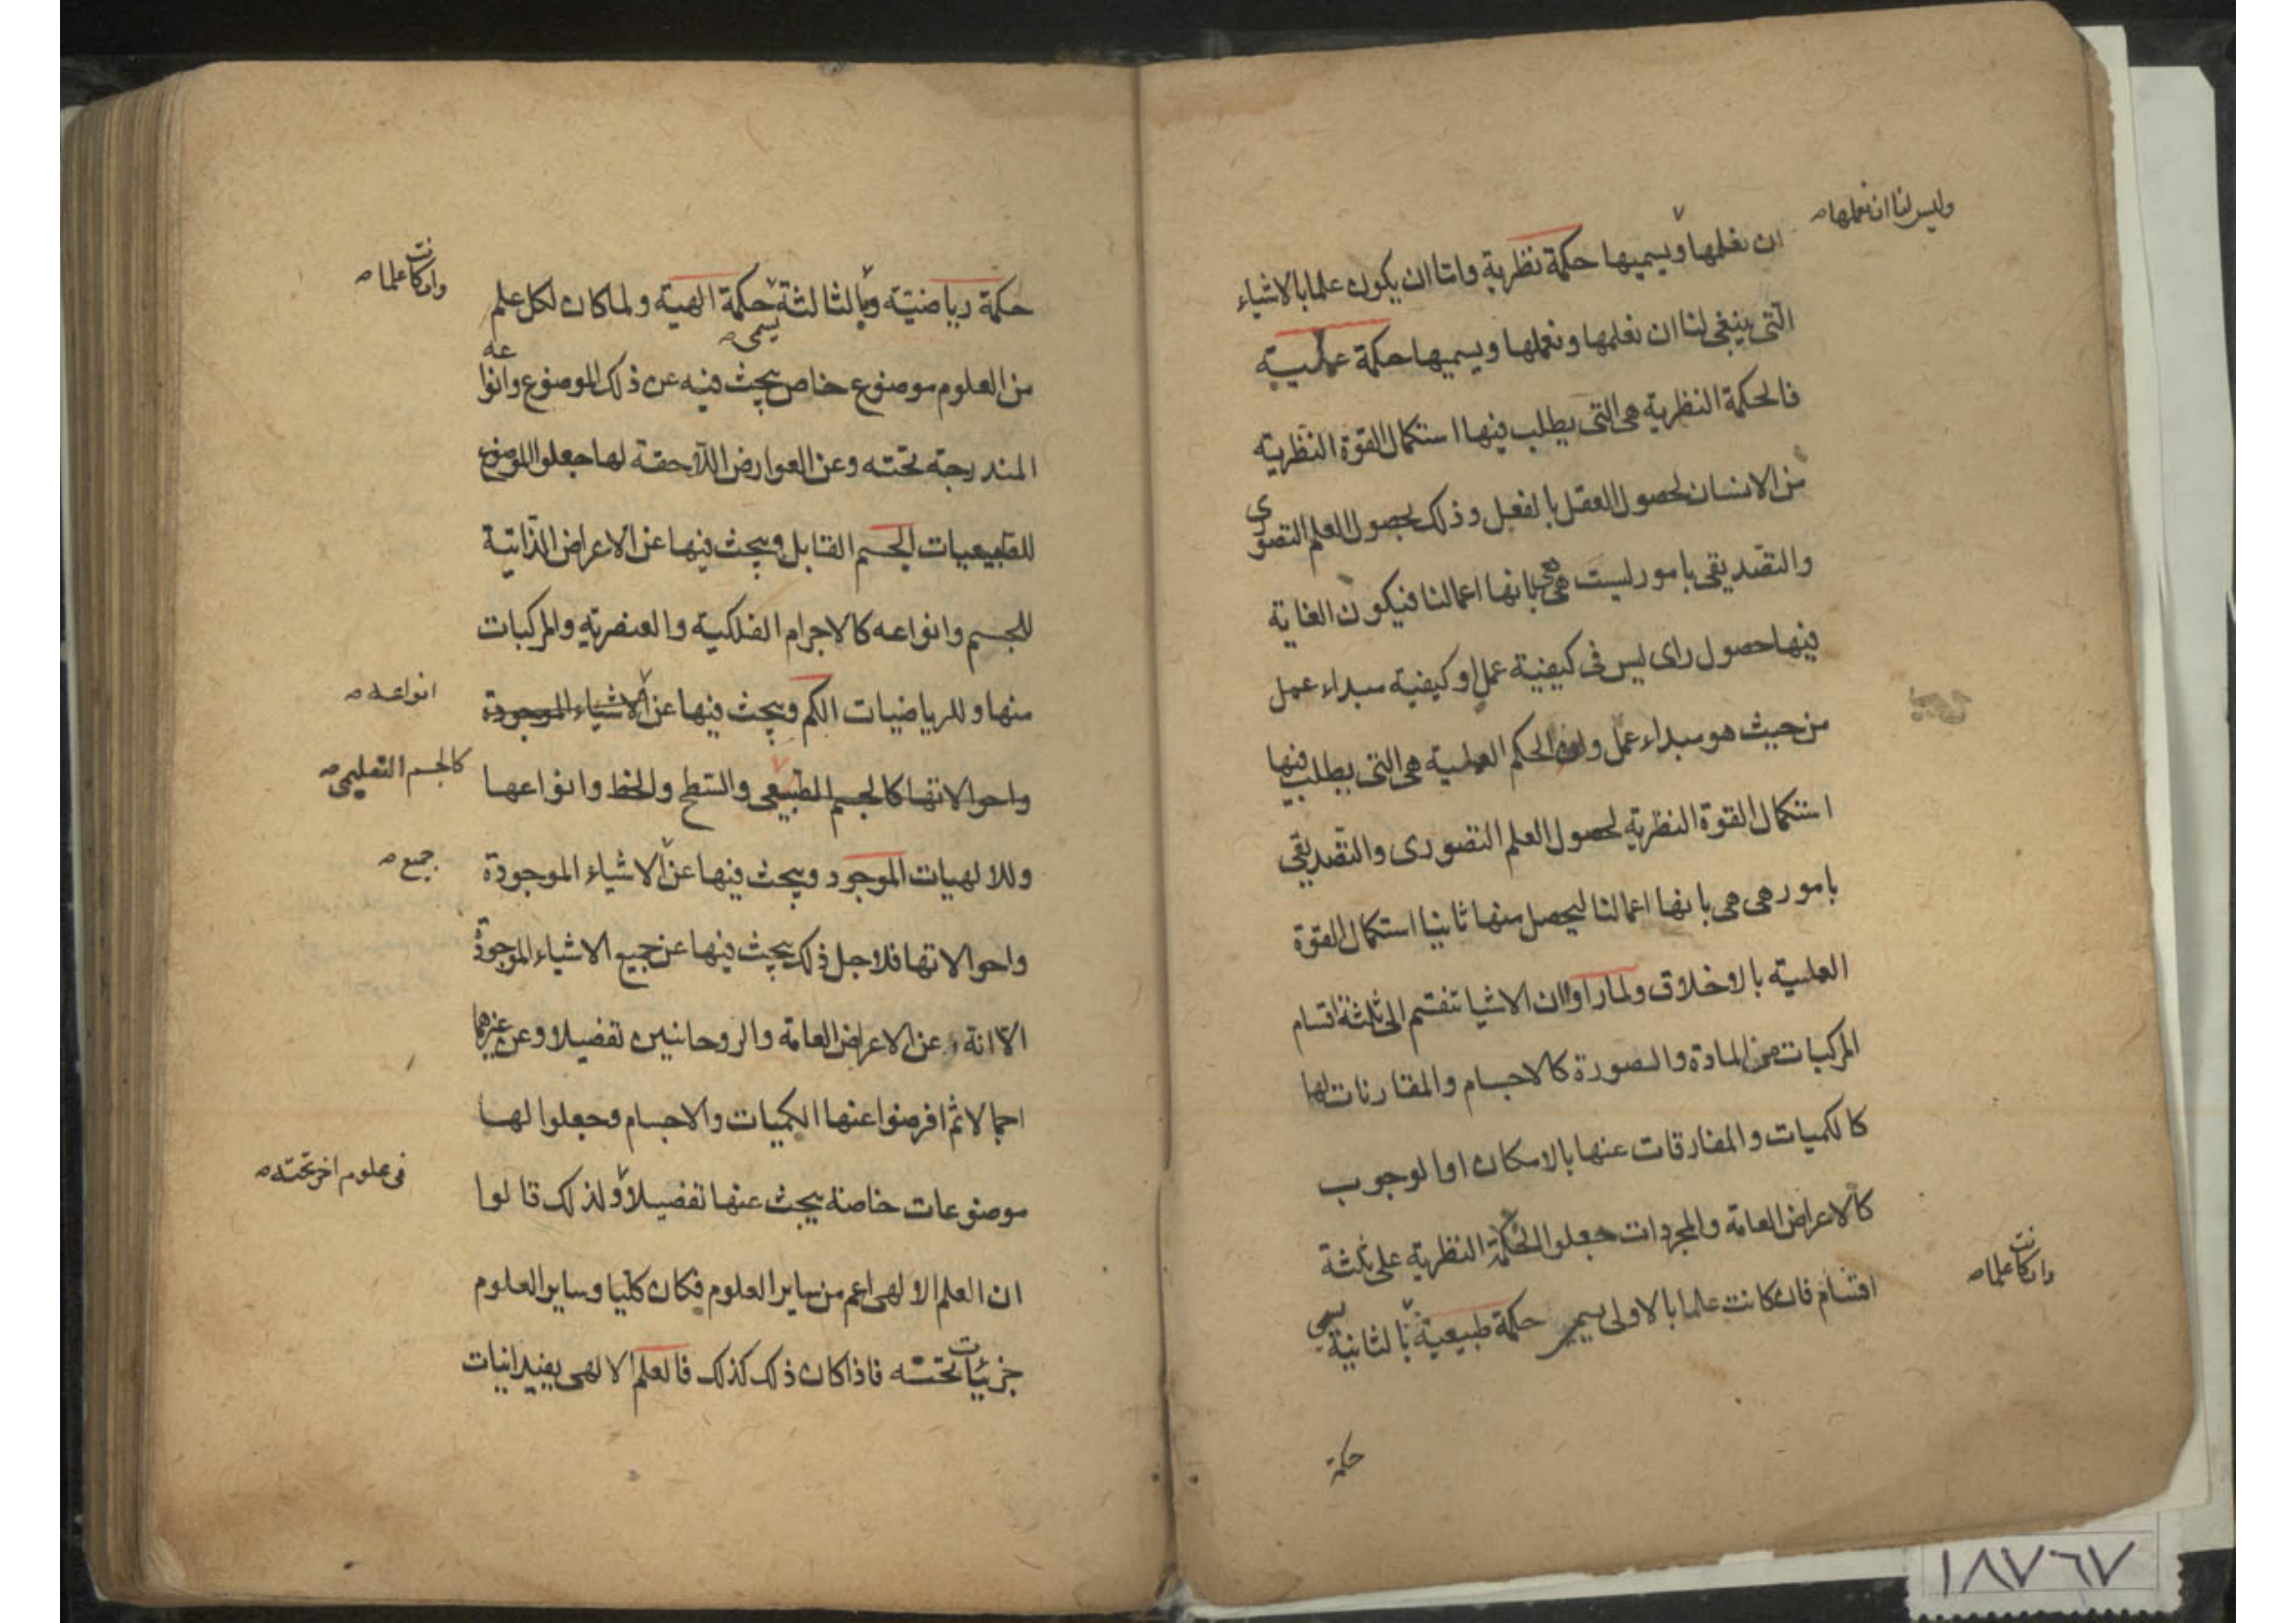 وليس لنا ان نعملها صه
ان نعلمها ويسميها حكمة نظرية واما ان يكون علما بالاشياء
التى ينبغى لنا ان نعلمها ونعملها ويسميها حكمة عملية
فالحكمة النظرية هى التى يطلب فيها استكمال القوة النظرية
من الانسان لحصول العقل بالفعل وذلك بحصول العلم التصورى
والتصديقى بامور ليست هى هى بانها اعمالنا فيكون الغاية
فيها حصول راى ليس فى كيفية عمل او كيفية مبداء عمل
من حيث هو مبداء عمل وان الحكم العملية هى التى يطلب فيها
استكمال القوة النظرية لحصول العلم التصورى والتصديقى
بامور هى هى بانها اعمالنا ليحصل منها ثانيا استكمال القوة
العملية بالاخلاق ولما راوا ان الاشيا تنقسم الى ثلثة اقسام
المركبات من المادة والصورة كالاجسام والمقارنات لها
كالكميات والمفارقات عنها بالامكان او الوجوب
كالاعراض العامة والمجردات جعلوا الحكمة النظرية على ثلثة
وان كانت علما صه
اقسام فان كانت علما بالاولى يسمى حكمة طبيعية بالثانية يسمى
حكمة
وان كانت علما صه
حكمة رياضية وبالثالثة حكمة الهية ولما كان لكل علم
يسمى صه
من العلوم موضوع خاص يبحث فيه عن ذلك الموضوع وانواعه
المندرجة تحته وعن العوارض اللاحقة لها جعلوا الموضوع
للطبيعيات الجسم القابل ويبحث فيها عن الاعراض الذاتية
للجسم وانواعه كالاجرام الفلكية والعنصرية والمركبات
انواعه صه
منها وللرياضيات الكم ويبحث فيها عن الاشياء الموجودة
كالجسم التعليمى صه
واحوالاتها كالجسم الطبيعى والسطح والخط وانواعها
جميع صه
وللالهيات الموجود ويبحث فيها عن الاشياء الموجودة
واحوالاتها فلاجل ذلك يبحث فيها عن جميع الاشياء الموجودة
الا انه عن الاعراض العامة والروحانيين تفصيلا وعن غيرهما
اجمالا ثم افرضوا عنها الكميات والاجسام وجعلوا لها
فى علوم اخر تحته صه
موضوعات خاصة يبحث عنها تفصيلا ولذلك قالوا
ان العلم الالهى اعم من ساير العلوم فكان كليا وساير العلوم
جزئيات تحته فاذا كان ذلك كذلك فالعلم الالهى يفيد انيات
١٨٧٦٧